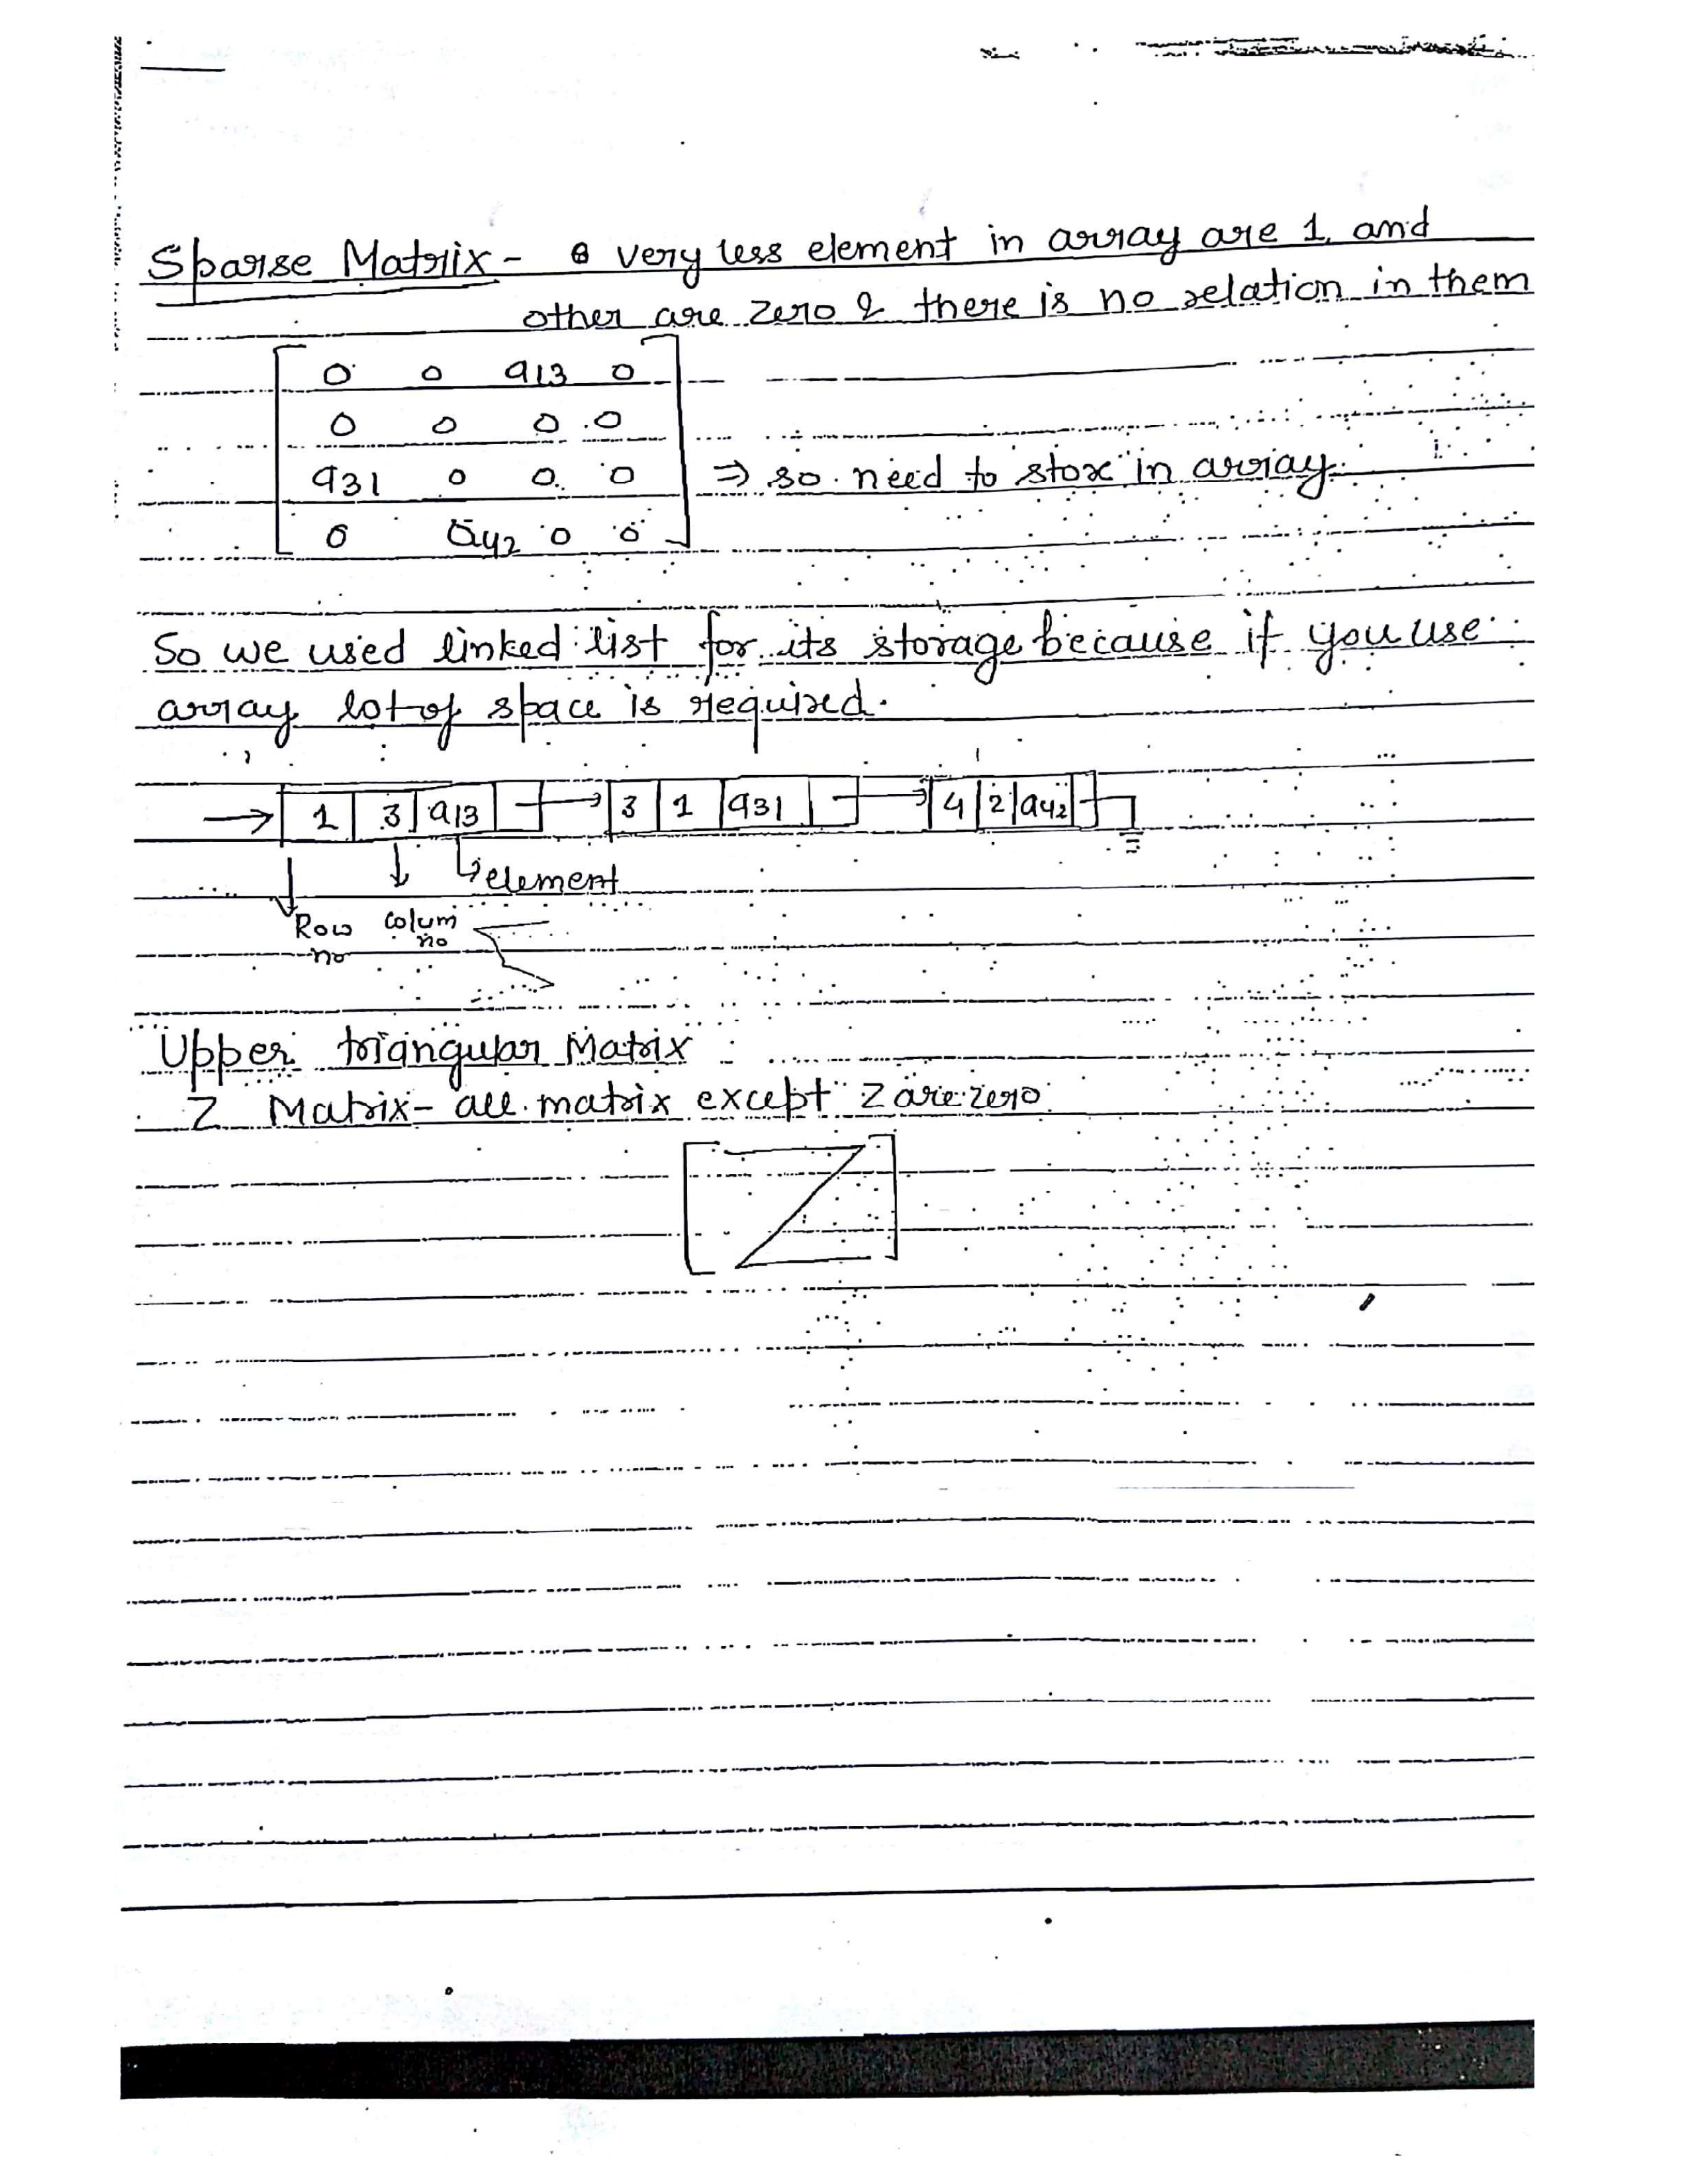 Sparse Matrix - very less element in array are 1, and
other are zero & there is no relation in them
0 0 a13 0
0 0 0 0
a31 0 0 0 ⇒ so need to store in array
0 a42 0 0
So we used linked list for its storage because if you use
array lot of space is required.
→ 1 3 a13 → 3 1 a31 → 4 2 a42
element
Row no colum no
Upper triangular Matrix
Z Matrix - all matrix except Z are zero